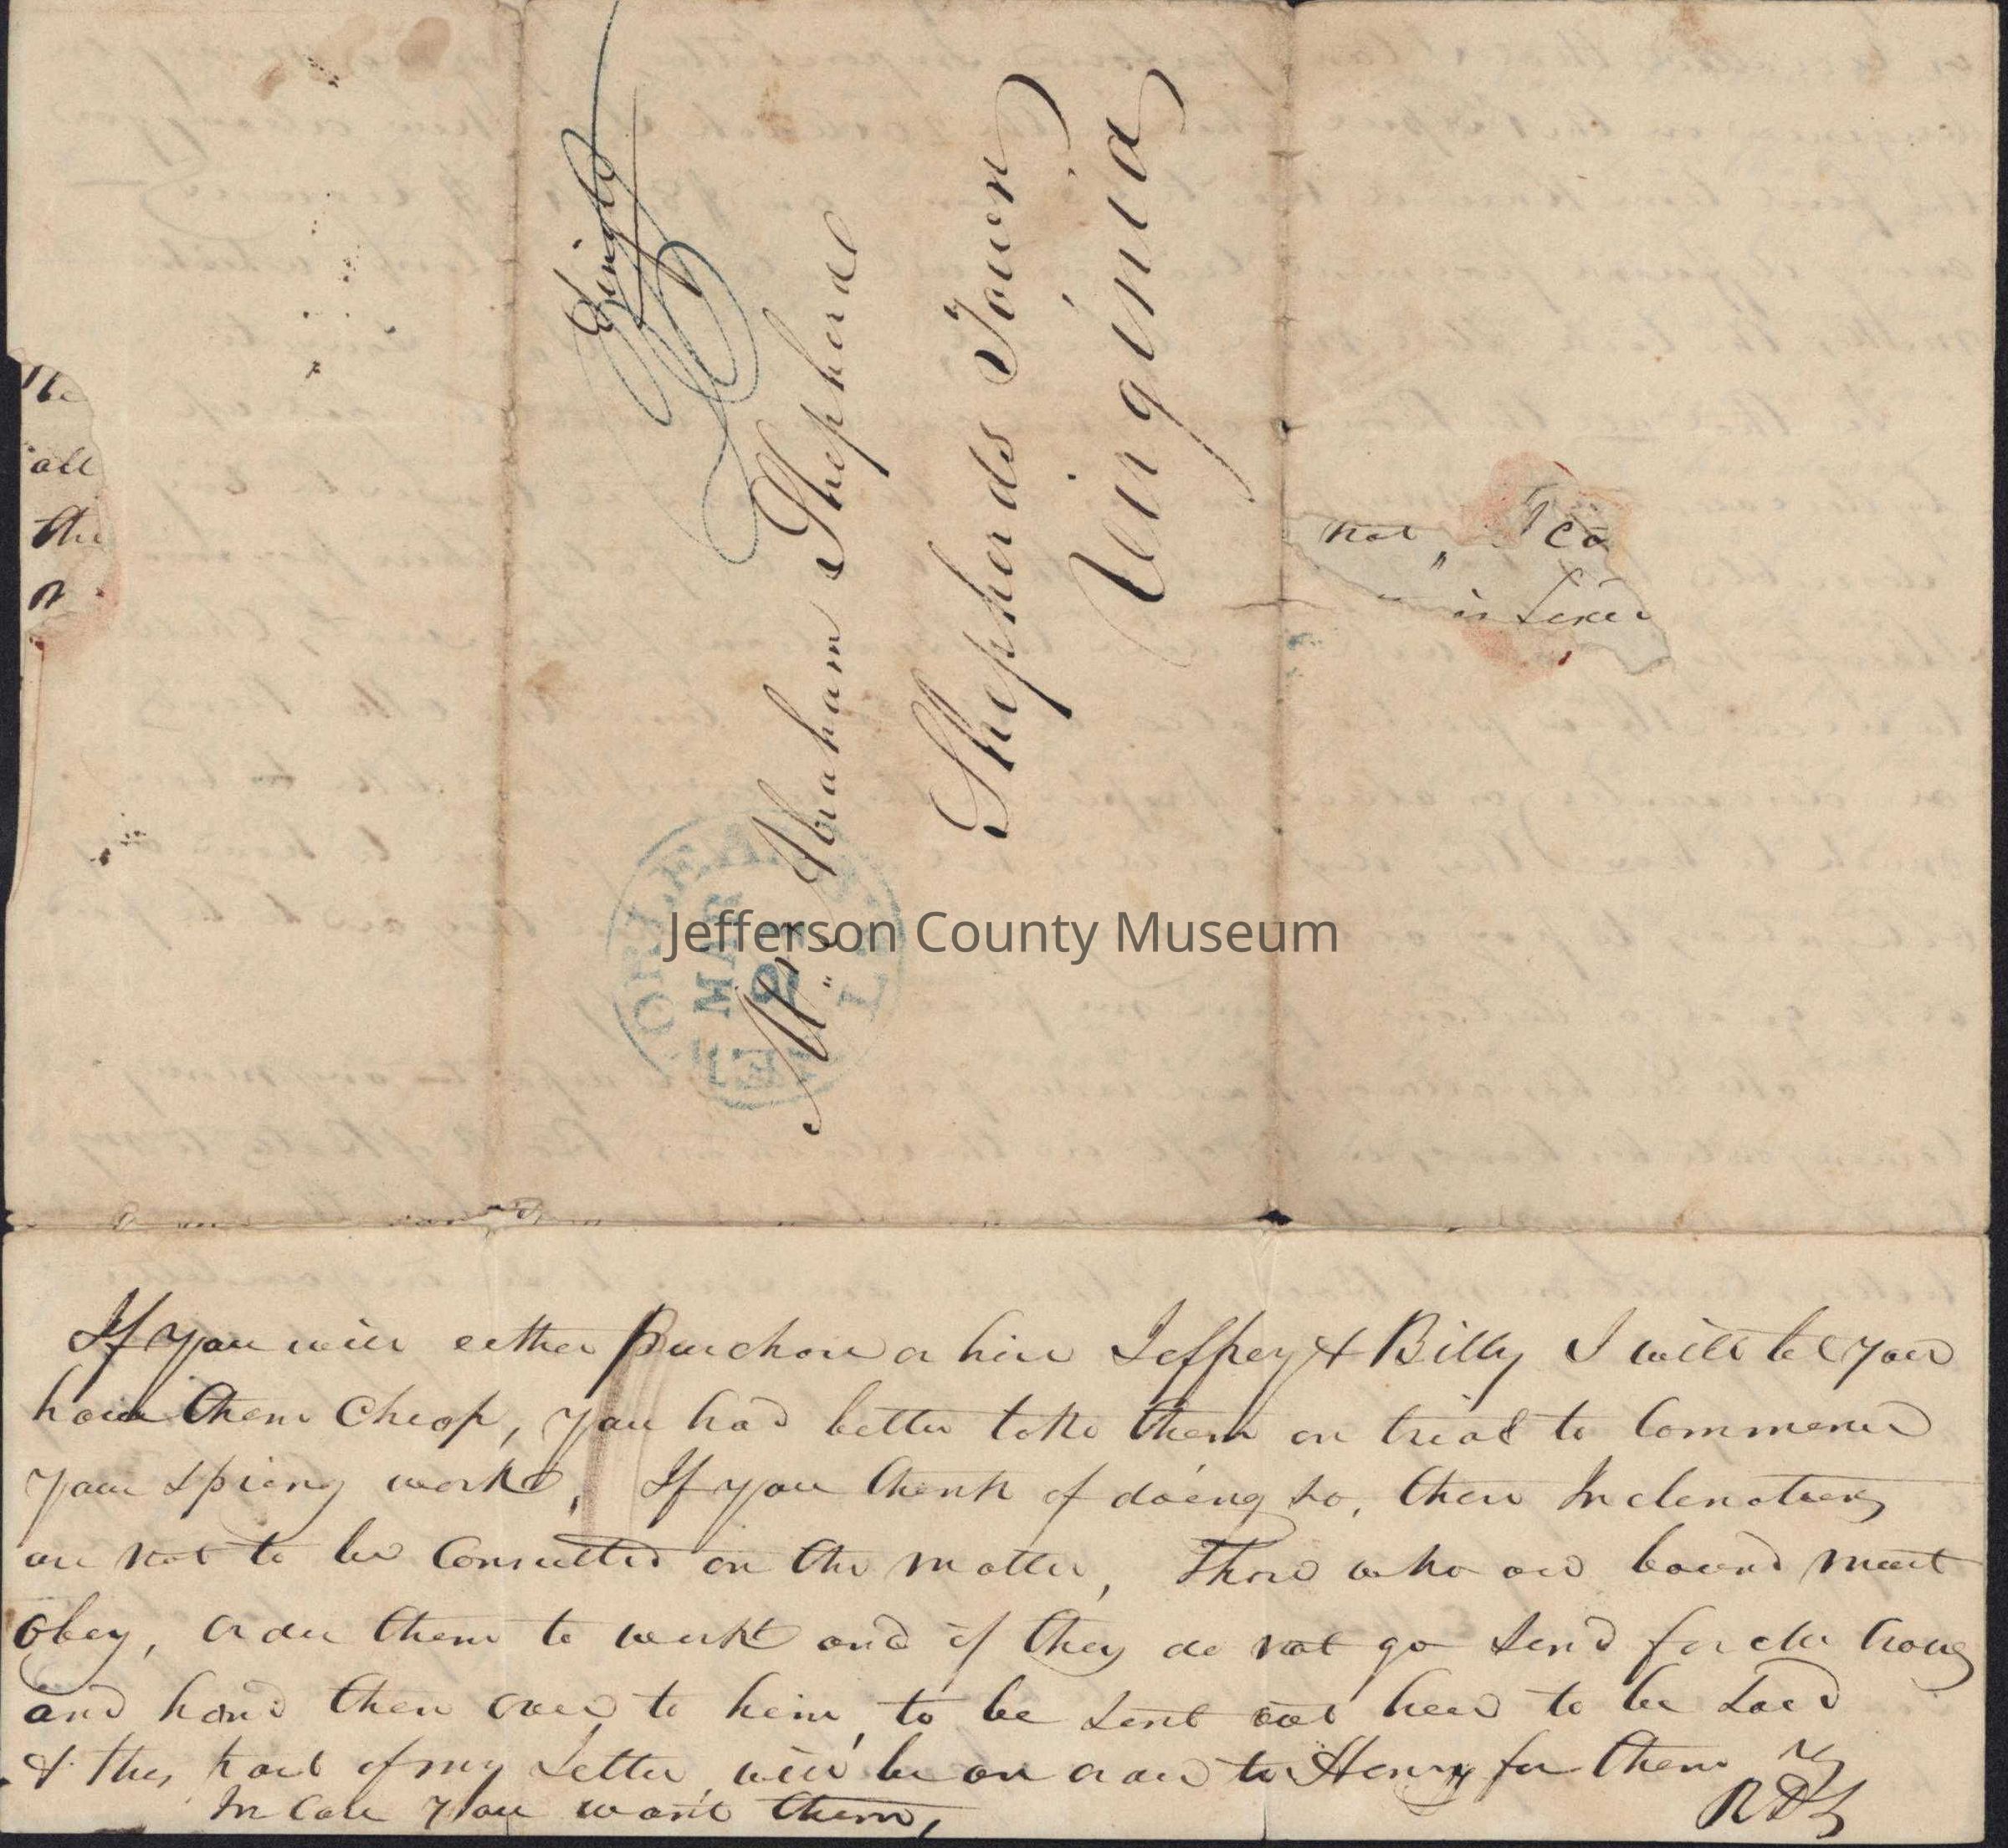 Single
Mr Abraham Shepherd
Shepherds Town
Virginia
NEW ORLEANS
MAR
Jefferson County Museum
The
all
the
not " I co
in Lexer
If you will either Purchase or hire Jeffrey & Billy I will let you
have them Cheap, you had better take them on trial to Commence
your spring work, If you think of doing so, their Inclenations
are not to be Consulted on the matter, Those who are bound must
obey, order them to work and if they do not go send for
and hand them over to him, to be sent out here to be Sold
& this part of my Letter, will be an order to Henry for them
In Case you want them,
RDS